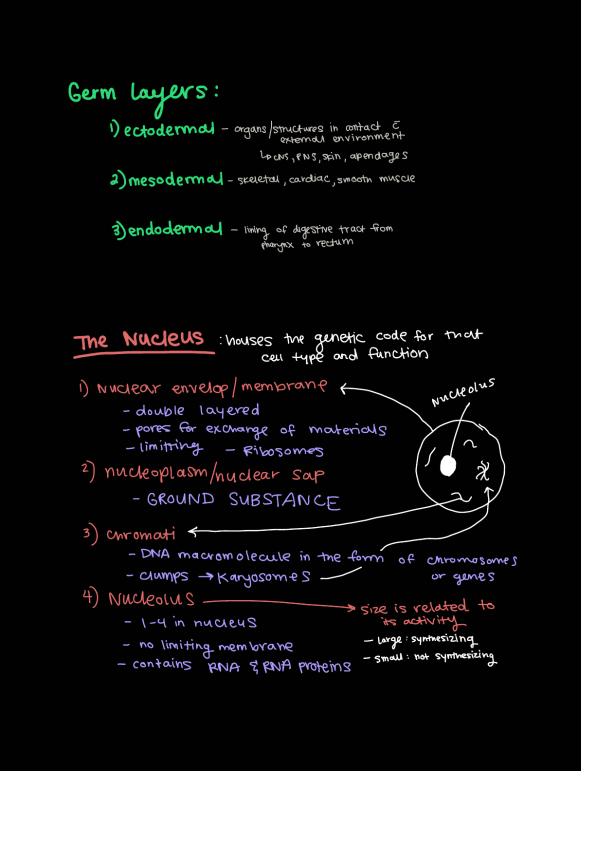 Germ layers:
1) ectodermal - organs/structures in contact c̄
external environment
↳ CNS, PNS, skin, apendages
2) mesodermal - skeletal, cardiac, smooth muscle
3) endodermal - lining of digestive tract from
pharynx to rectum
The Nucleus : houses the genetic code for that
cell type and function
1) Nuclear envelop/membrane
- double layered
- pores for exchange of materials
- limitting - Ribosomes
Nucleolus
2) nucleoplasm/nuclear sap
- GROUND SUBSTANCE
3) chromati
- DNA macromolecule in the form of chromosomes
or genes
- clumps → Karyosomes
4) Nucleolus → size is related to
its activity
- 1-4 in nucleus
- large: synthesizing
- no limiting membrane
- small: not synthesizing
- contains RNA & RNA proteins